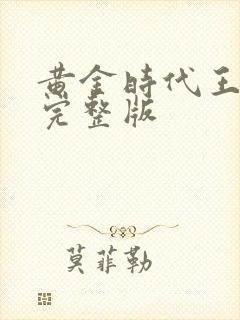 黄金時代王
完整版
莫菲勒